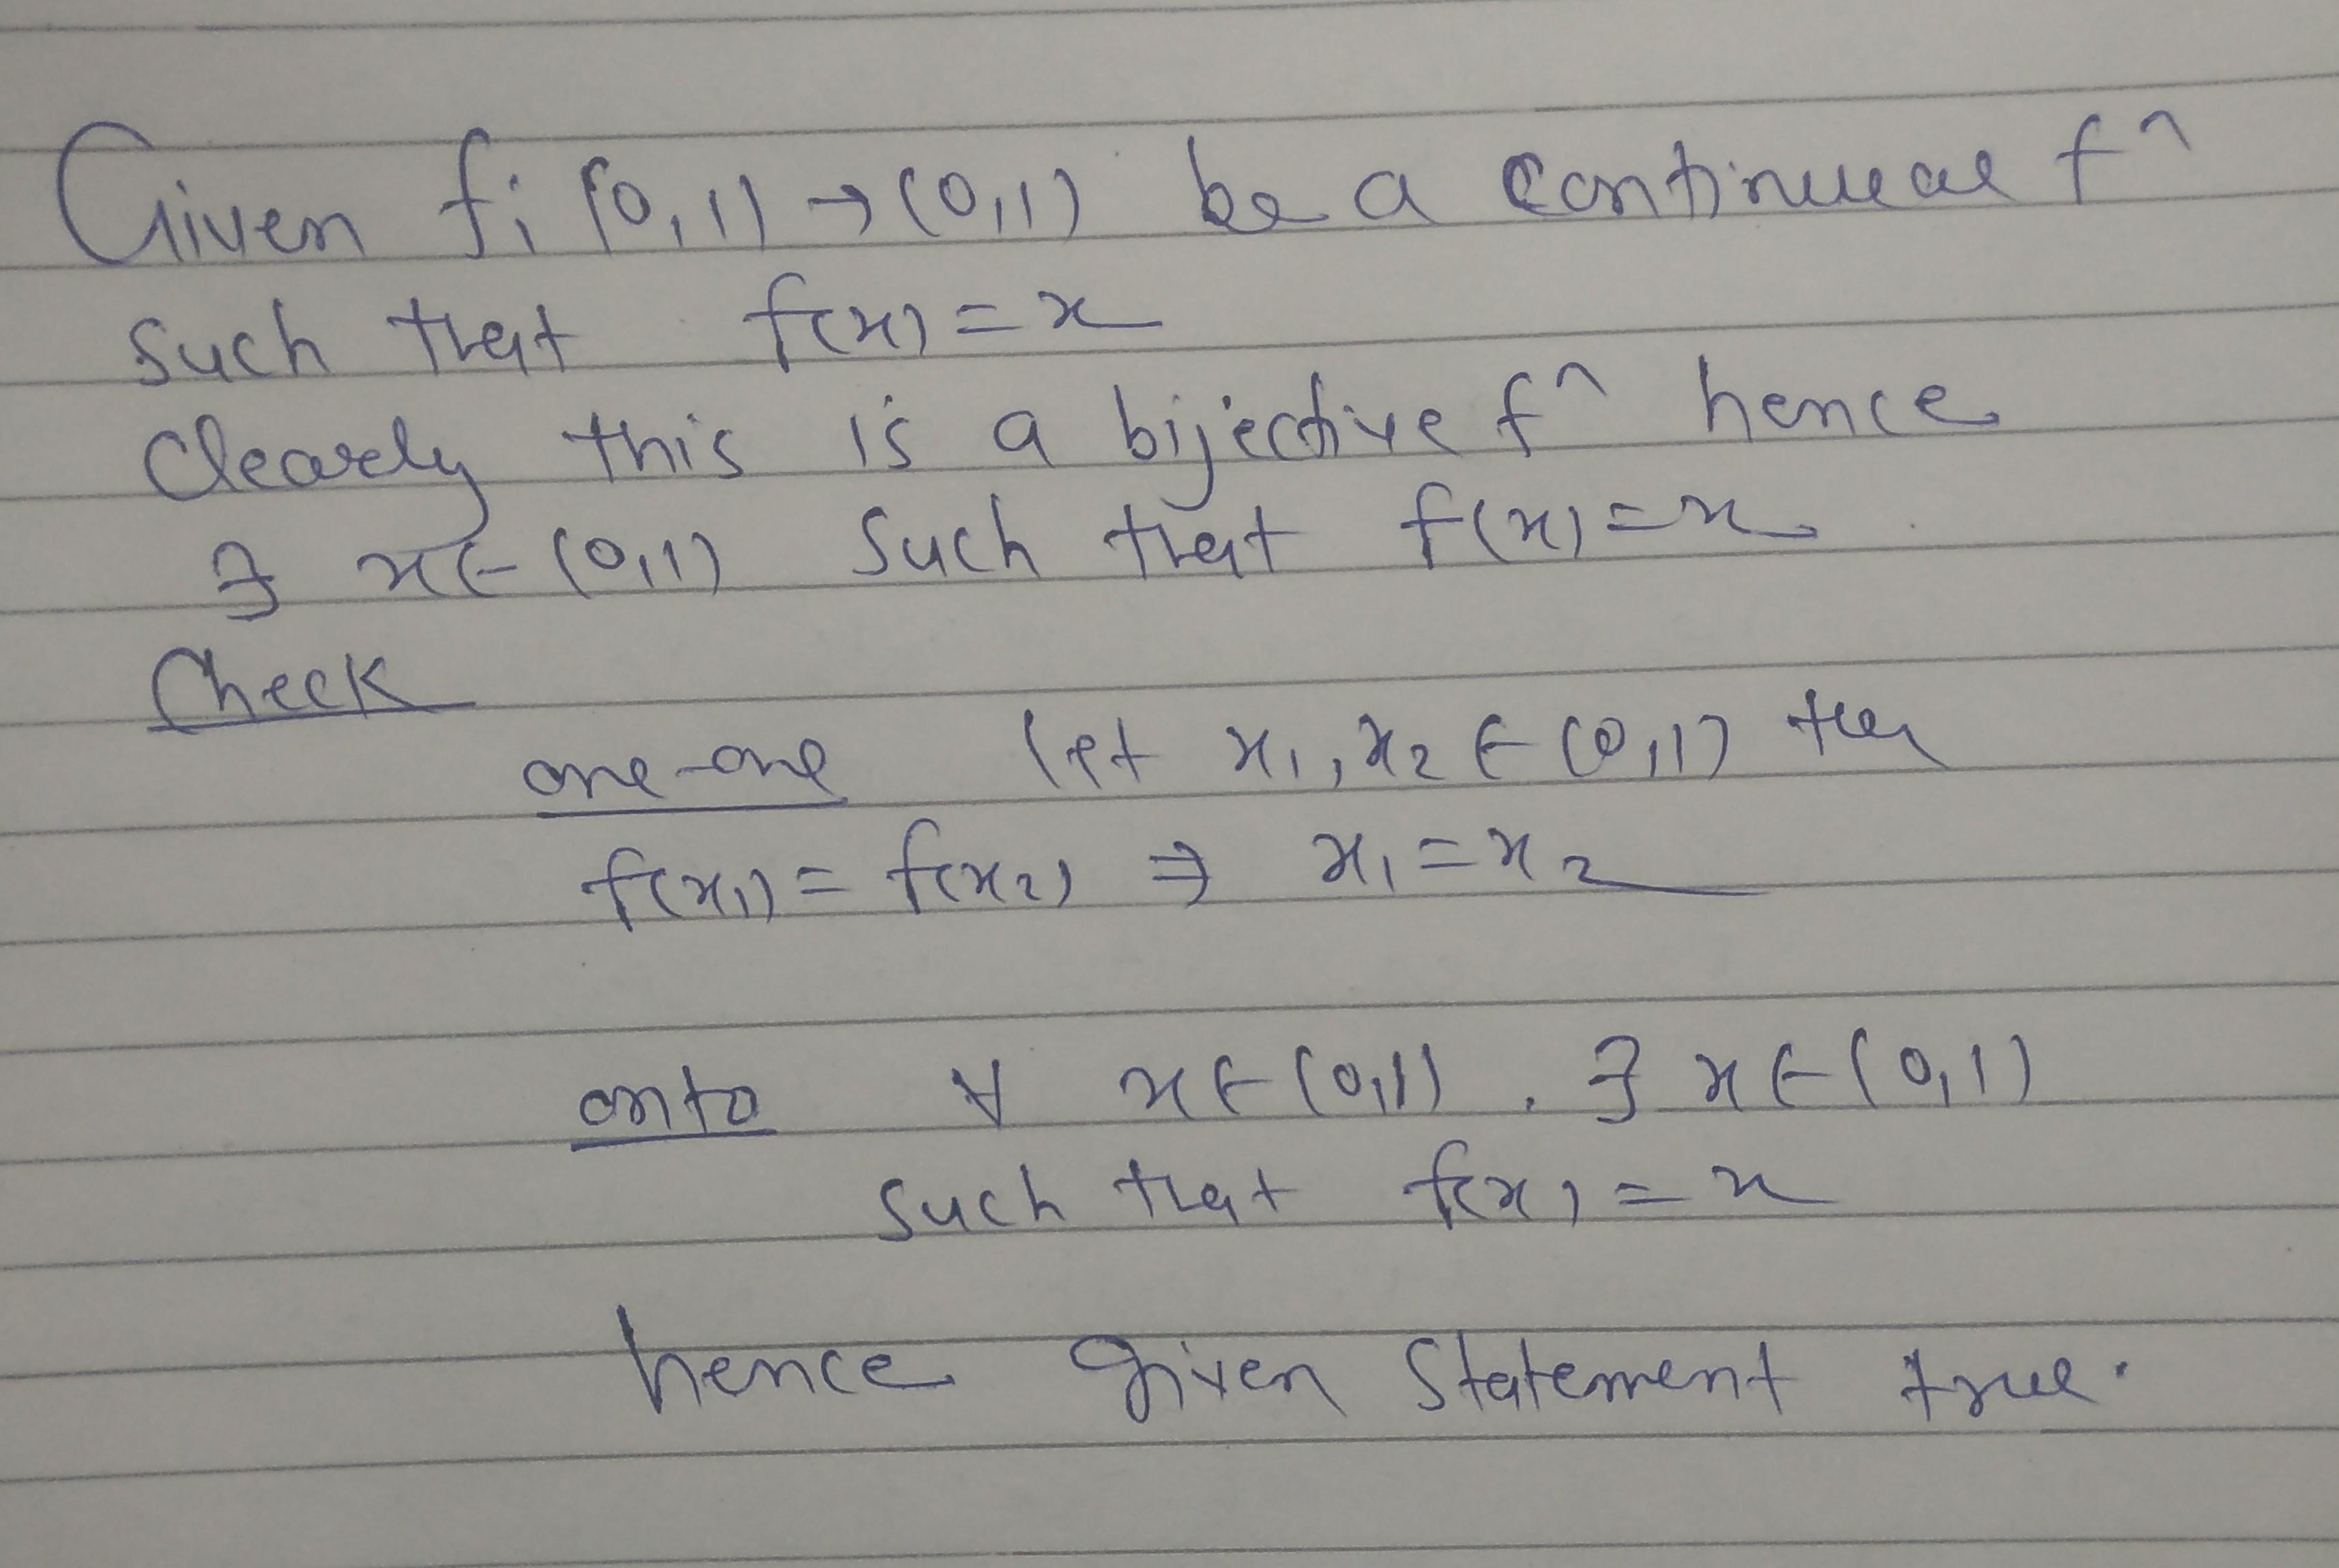 Given f: (0,1) → (0,1) be a continuous fⁿ
such that f(x) = x
Clearly this is a bijective fⁿ hence
∃ x ∈ (0,1) such that f(x) = x
Check
one-one let x₁, x₂ ∈ (0,1) then
f(x₁) = f(x₂) ⇒ x₁ = x₂
onto ∀ x ∈ (0,1) . ∃ x ∈ (0,1)
such that f(x) = x
hence given statement true.